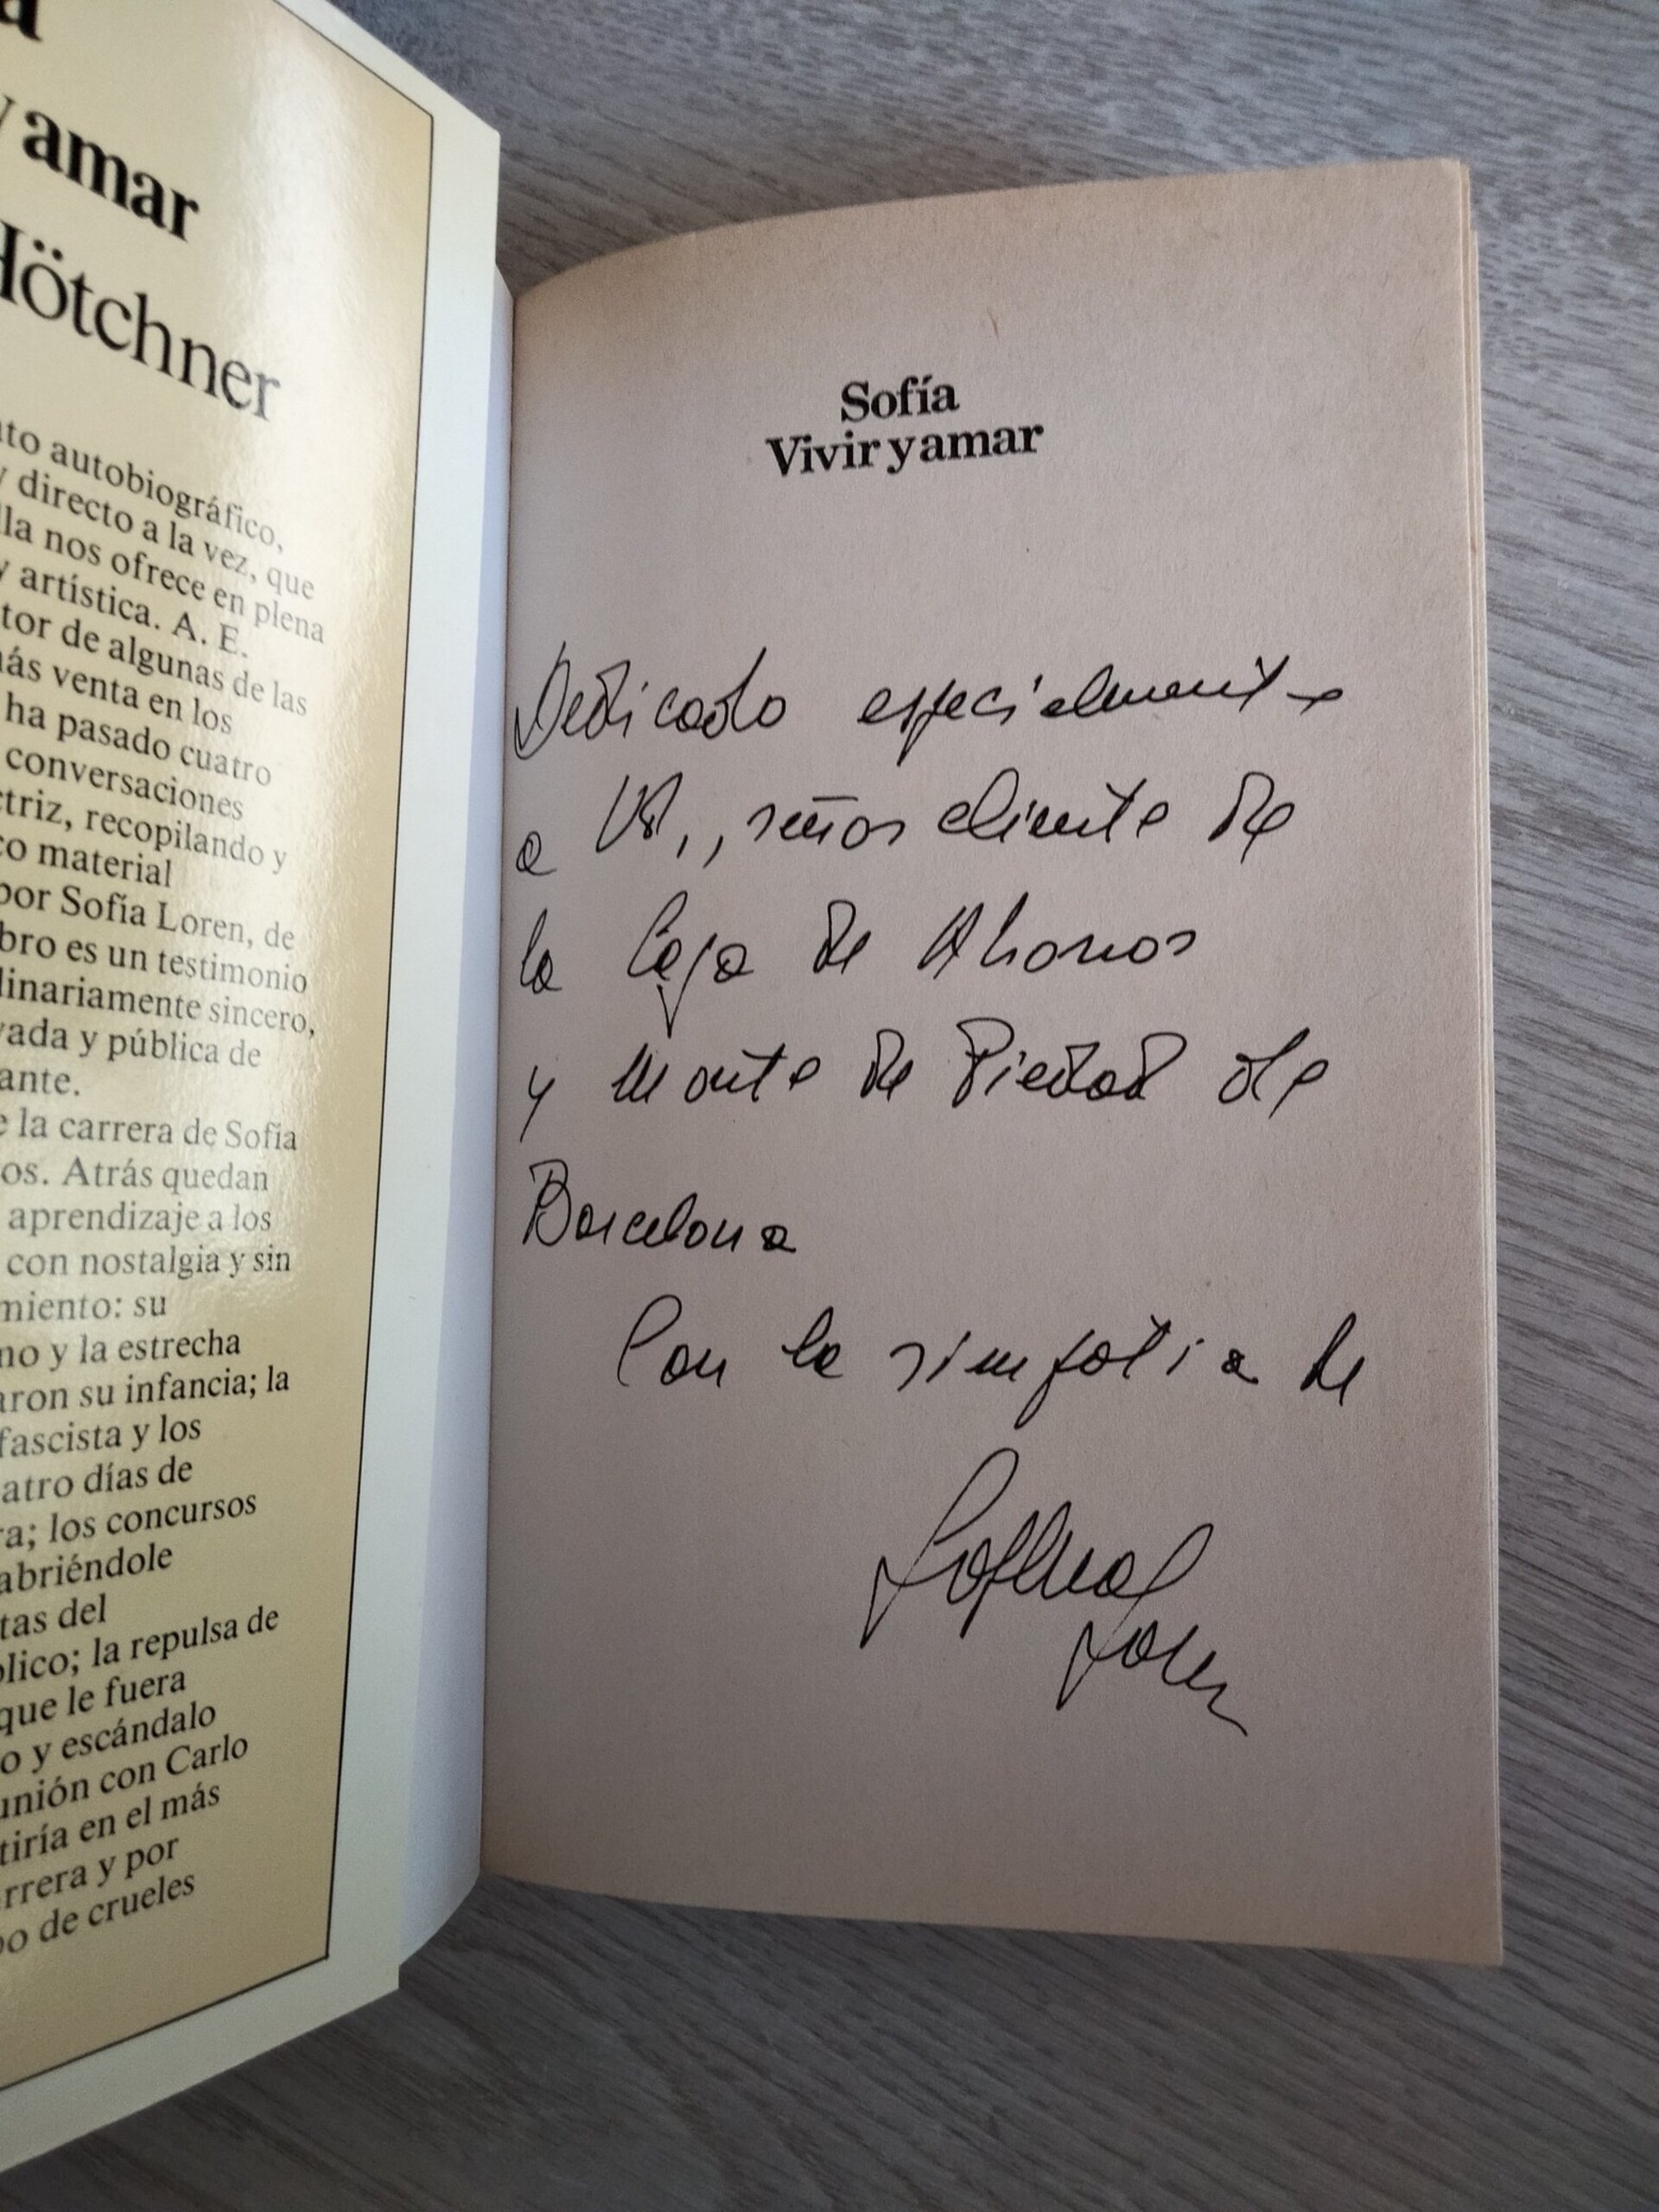 a
y amar
Hötchner
to autobiográfico,
y directo a la vez, que
lla nos ofrece en plena
y artística. A. E.
tor de algunas de las
más venta en los
ha pasado cuatro
conversaciones
ctriz, recopilando y
co material
por Sofía Loren, de
bro es un testimonio
dinariamente sincero,
vada y pública de
ante.
e la carrera de Sofía
os. Atrás quedan
aprendizaje a los
con nostalgia y sin
miento: su
no y la estrecha
aron su infancia; la
fascista y los
atro días de
ra; los concursos
abriéndole
tas del
blico; la repulsa de
que le fuera
o y escándalo
unión con Carlo
tiría en el más
rrera y por
po de crueles
Sofía
Vivir y amar
Dedicado especialmente
a Vd., señor cliente de
la Caja de Ahorros
y Monte de Piedad de
Barcelona
Con la simpatia de
Sophia
Loren